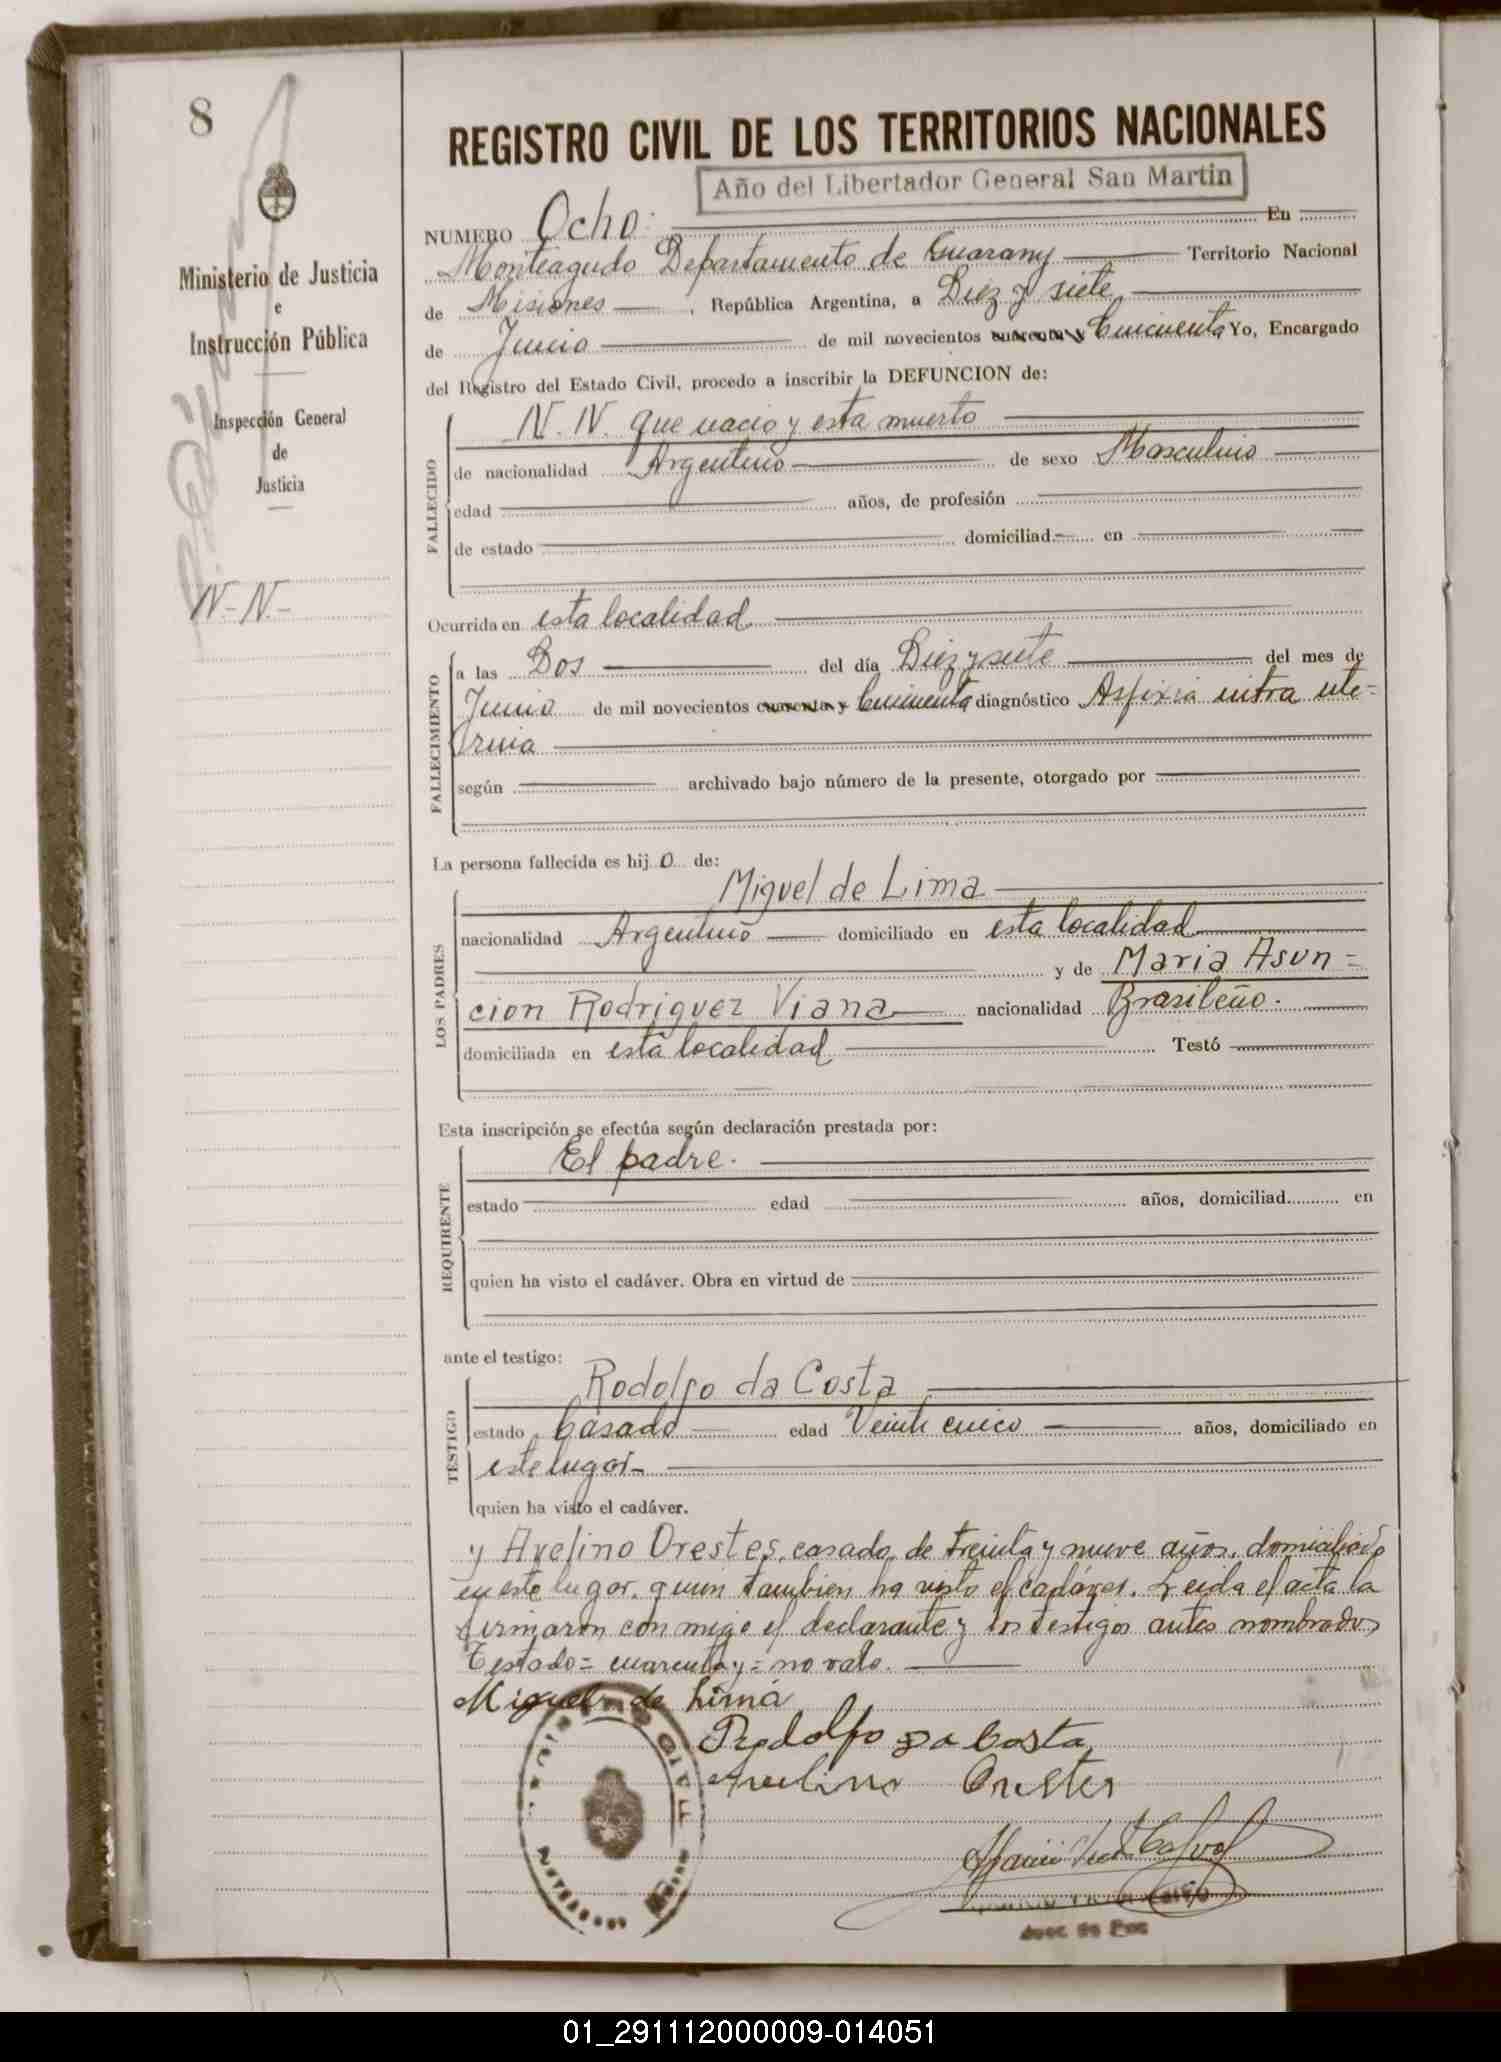 8
REGISTRO CIVIL DE LOS TERRITORIOS NACIONALES
Año del Libertador General San Martin
Ministerio de Justicia
e
Instrucción Pública
Inspección General
de
Justicia
N-N.-
NUMERO Ocho. En
Monteagudo Departamento de Guarany Territorio Nacional
de Misiones, República Argentina, a Diez y siete
de Junio de mil novecientos cuarenta y Cincuenta Yo, Encargado
del Registro del Estado Civil, procedo a inscribir la DEFUNCION de:
FALLECIDO
N. N. que nacio y esta muerto
de nacionalidad Argentino de sexo Masculino
edad años, de profesión
de estado domiciliad en
Ocurrida en esta localidad
FALLECIMIENTO
a las Dos del día Diez y siete del mes de
Junio de mil novecientos cuarenta y Cincuenta diagnóstico Asfixia intra ute=
rina
según archivado bajo número de la presente, otorgado por
La persona fallecida es hijo de:
LOS PADRES
Miguel de Lima
nacionalidad Argentino domiciliado en esta localidad
y de Maria Asun=
cion Rodriguez Viana nacionalidad Brasileño.
domiciliada en esta localidad Testó
Esta inscripción se efectúa según declaración prestada por:
REQUIRENTE
El padre.
estado edad años, domiciliad en
quien ha visto el cadáver. Obra en virtud de
ante el testigo:
TESTIGO
Rodolfo da Costa
estado Casado edad Veinti cinco años, domiciliado en
este lugar-
quien ha visto el cadáver.
y Avelino Orestes, casado, de treinta y nueve años, domiciliado
en este lugar, quien tambien ha visto el cadáver. Leida el acta la
firmaron con migo el declarante y los testigos antes nombrados
Testado= cuarenta y= no vale.
Miguel de Lima
Rodolfo Da Costa
Avelino Orestes
Juez de Paz
01_291112000009-014051